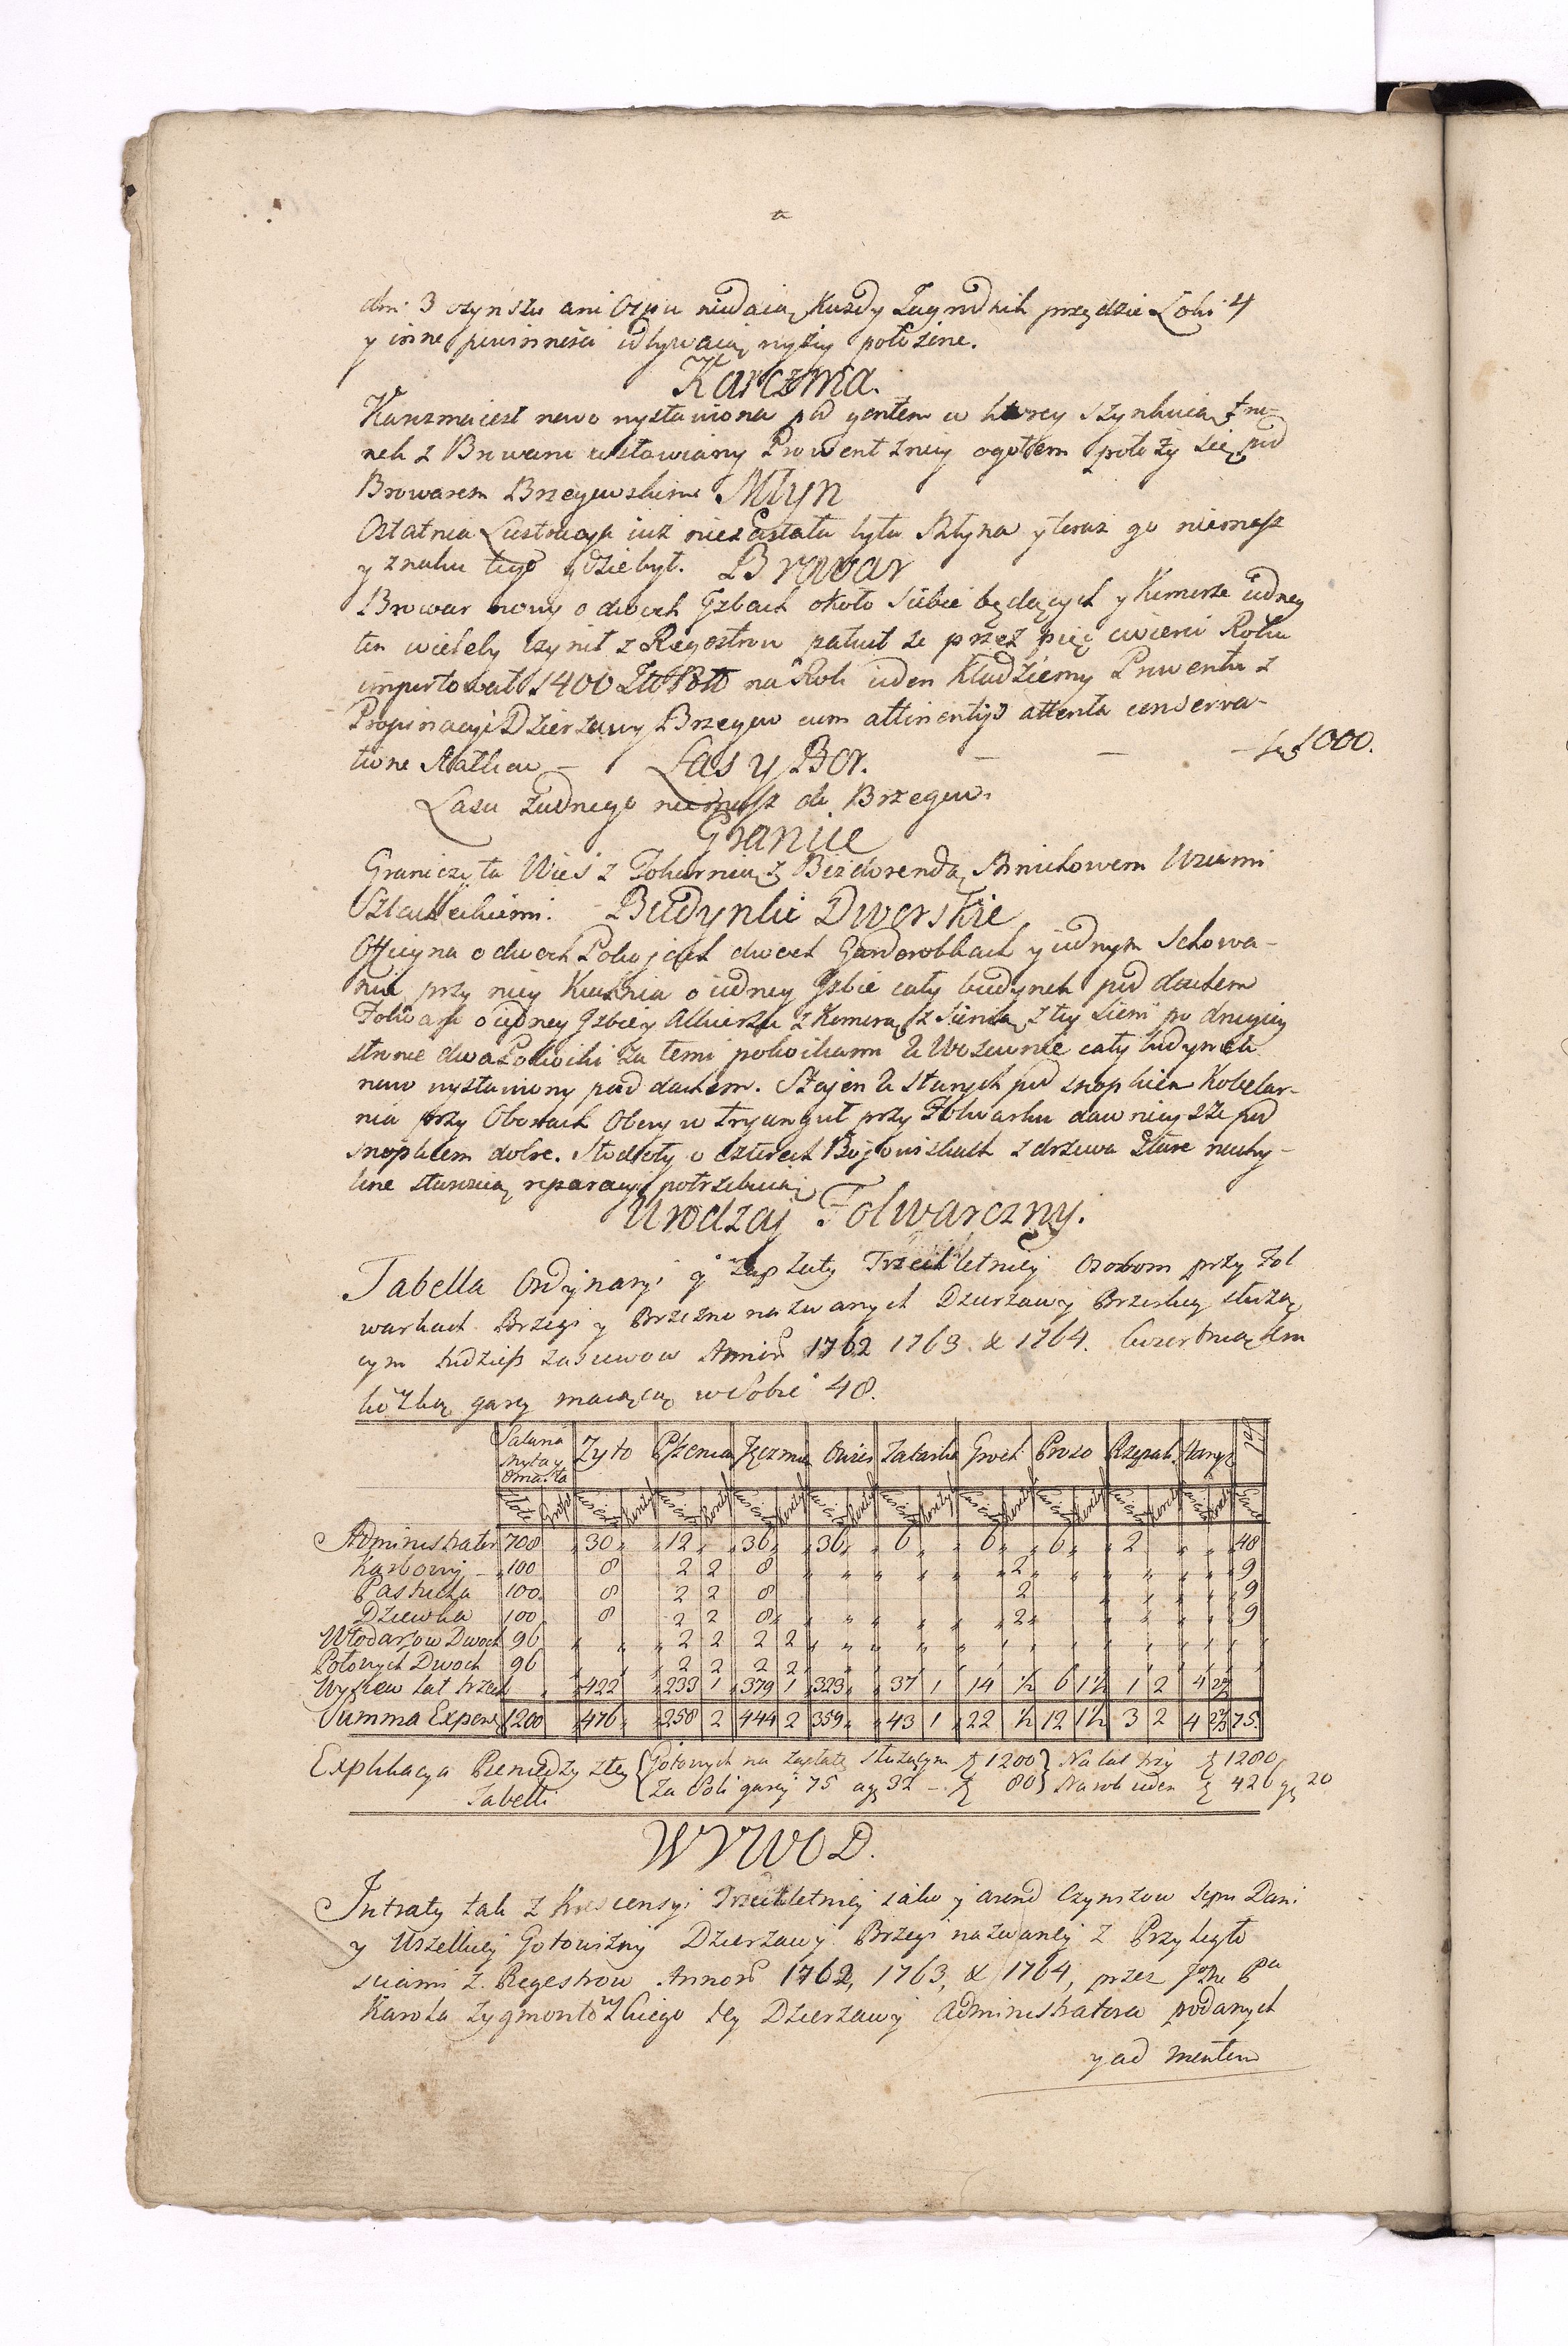 dni 3 czynszu ani Ospu niedaią Kuzdy Zagrodnik przędzie Łokci 4
y inne powinności odbywaią wyżey położone.
Karczma.
Karczma iest nowo wystawiona pod gontem w ktorey szynkuią tru-
nek z Browaru wstawiany Prowent zniey ogołem położy się pod
Browarem Brzegowskim Młyn
Ostatnia Lustracya iuż niezastała tylu Młyna y teraz go niemasz
y znaku tego gdzie był. Browar
Browar nowy o dwoch Izbach około siebie będących y Kimorze iedney
ten wieleby czynił z Regestrow patuit ze przez pięć cwierci Roku
importował 1400 na Rok ieden Kładziemy Prowentu z
Propinacyi Dzierżawy Brzegow cum attinentijs attenta conserva-
tione — Las y Bor. — — — zł 1000.
Lasu żadnego niemasz do Brzegow.
Granice
Graniczy ta Wieś z Tokarnią z Bizdorendą, Mnichowem Wsiami
Szlacheckiemi. Budynki Dworskie
Officyna o dwoch Pokojach dwoch Garderobkach y iednym Schowa-
niu przy niey Kuchnia o iedney Izbie cały budynek pod dachem
Folwark o iedney Izbie y Alkierzu z Komorą z Sienią z tey Sieni po drugiey
stronie dwa Pokoiki za temi pokoikami cały budynek
nowo wystawiony pod dachem. Stajen 2 starych pod snopkiem Kobelar-
nia przy Oborach Obory w tryanguł przy Folwarku dawnieysze pod
snopkiem dobre. Stodoły o czterech Bojowiskach z drzewa stare nachy-
lone staroscią reparacyi potrzebuią
Urodzaj Folwarczny.
Tabella Ordynaryi y Zapłaty Trzechletniey Osobom przy Fol
warkach Brzegi y Brzezno nazwanych Dzierzawy Brzeskiey służą
cym tudziesz zasiewow Annor 1762 1763 & 1764. Cwiertnią tam
garcy maiącą w Sobie 48.
Salaria Myta y Omasta Zyto Pszenica Jęczmie Owies Tatarka Groch Proso Rzepak
Złote Grosz
Administrator 708 „ 30 „ „ 12 „ „ 36 „ „ 36 „ „ 6 „ „ 6 „ „ 6 „ „ 2 „ „ 48
Karbowy — 100 8 2 2 8 „ „ „ „ „ „ 2 „ „ „ „ „ „ 9
Pastucha 100 8 2 2 8 2 9
Dziewka 100 8 2 2 8 „ „ „ „ „ 2 „ „ „ „ 9
Włodarzow Dwoch 96 „ „ „ 2 2 2 2 „ „ „ „ „ „ „ „
Polowych Dwoch 96 „ „ 2 2 2 2 „ „ „ „ „ „ „
Wysiew lat trzech „ „ 422 „ 233 1 „ 379 1 „ 323 „ „ 37 1 14 ½ 6 1½ 1 2 4 2⅔
Summa Expens 1200 „ 476 „ „ 258 2 444 2 359 „ „ 43 1 „ 22 ½ 12 1½ 3 2 4 2⅔ 75
Explikacya Pieniędzy z tey Gotowych na zapłatę służącym zł 1200 Na lat trzy zł 1280
Tabelli Za Soli garcy 75 a gr 32 — zł 80 Na rok ieden zł 426 gr 20
WYWOD.
Intraty tak z Krescensyi Trzechletniey iako y arend Czynszow sepu Dani
y Wszelkiey Gotowizny Dzierzawy Brzegi nazwaney z Przyległo
sciami z Regestrow Annor 1762, 1763, & 1764, przez Jmc Pa
Karola Zygmontowskiego tey Dzierzawy Administratora podanych
y ad mentem